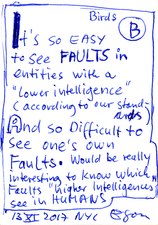 Birds
B
It's so EASY
to see FAULTS in
entities with a
"lower intelligence"
(according to our stand-
ards)
And so Difficult to
see one's own
Faults. Would be really
interesting to know which
Faults "higher Intelligences"
see in HUMANS
13 XI 2017 NYC